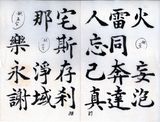 妄泡
雷同奔達
人忘己真
宅斯存刹
那淨域
樂永謝